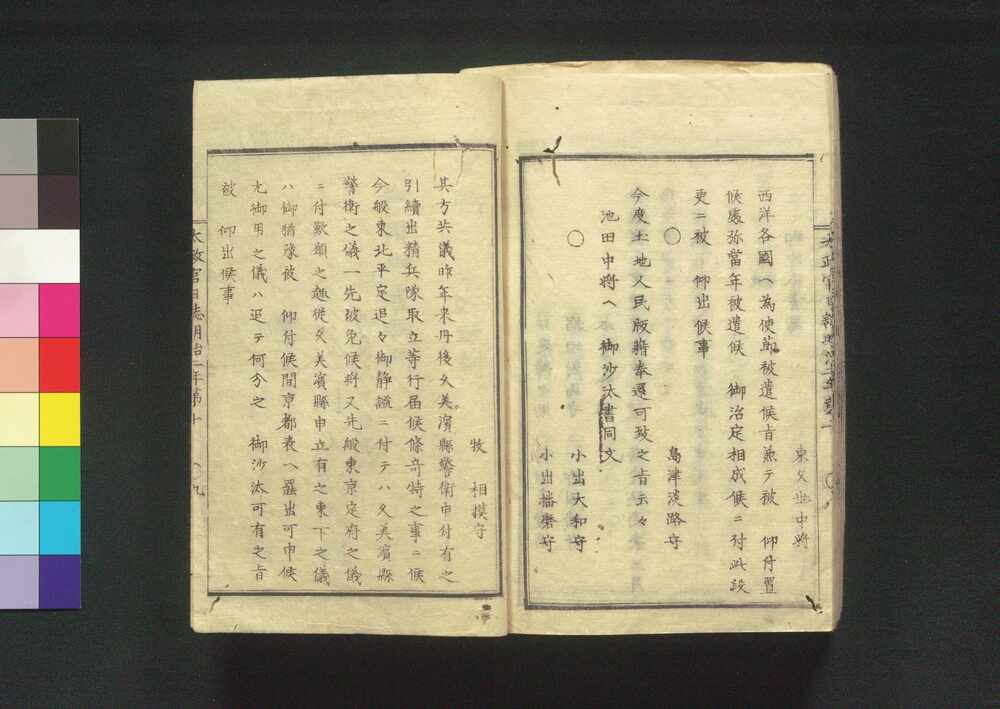 東久世中將
西洋各國ヘ為使節被遣候旨兼テ被　仰付置
候處弥當年被遣候　御治定相成候ニ付此段
更ニ被　仰出候事
○　島津淡路守
今度土地人民版籍奉還可致之旨云々
池田中將ヘ　御沙汰書同文
○　小出大和守
小出播磨守
牧　相摸守
其方共儀昨年来丹後久美濱縣警衛申付有之
引續出精兵隊取立等行届候條奇特之事ニ候
今般東北平定追々御靜謐ニ付テハ久美濱縣
警衛之儀一先被免候將又先般東京定府之儀
ニ付歎願之趣從久美濱縣申立有之東下之儀
ハ御猶豫被　仰付候間京都表ヘ罷出可申候
尤御用之儀ハ追テ何分之　御沙汰可有之旨
被　仰出候事
太政官日誌明治二年第十　○九